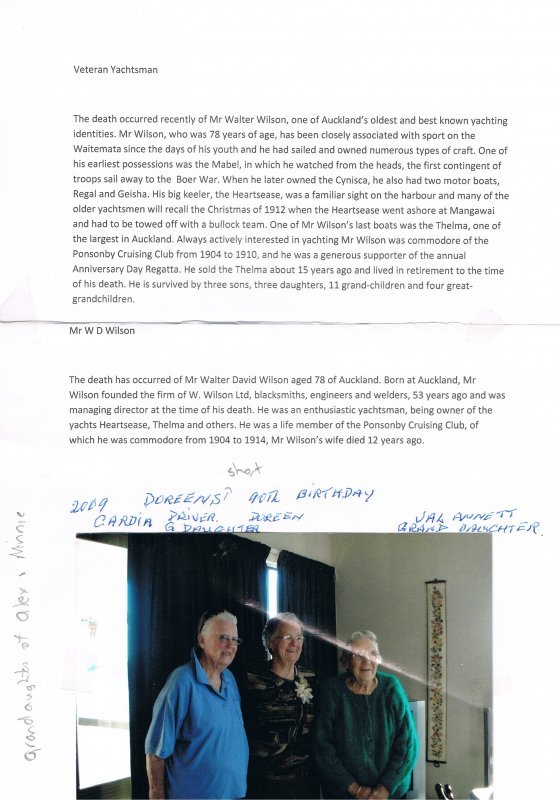 Veteran Yachtsman
The death occurred recently of Mr Walter Wilson, one of Auckland's oldest and best known yachting
identities. Mr Wilson, who was 78 years of age, has been closely associated with sport on the
Waitemata since the days of his youth and he had sailed and owned numerous types of craft. One of
his earliest possessions was the Mabel, in which he watched from the heads, the first contingent of
troops sail away to the  Boer War. When he later owned the Cynisca, he also had two motor boats,
Regal and Geisha. His big keeler, the Heartsease, was a familiar sight on the harbour and many of the
older yachtsmen will recall the Christmas of 1912 when the Heartsease went ashore at Mangawai
and had to be towed off with a bullock team. One of Mr Wilson's last boats was the Thelma, one of
the largest in Auckland. Always actively interested in yachting Mr Wilson was commodore of the
Ponsonby Cruising Club from 1904 to 1910, and he was a generous supporter of the annual
Anniversary Day Regatta. He sold the Thelma about 15 years ago and lived in retirement to the time
of his death. He is survived by three sons, three daughters, 11 grand-children and four great-
grandchildren.
Mr W D Wilson
The death has occurred of Mr Walter David Wilson aged 78 of Auckland. Born at Auckland, Mr
Wilson founded the firm of W. Wilson Ltd, blacksmiths, engineers and welders, 53 years ago and was
managing director at the time of his death. He was an enthusiastic yachtsman, being owner of the
yachts Heartsease, Thelma and others. He was a life member of the Ponsonby Cruising Club, of
which he was commodore from 1904 to 1914, Mr Wilson's wife died 12 years ago.
short
2009 DOREENS 90TH BIRTHDAY
CARDIA DRIVER. DOREEN VAL ANNETT
G DAUGHTER GRAND DAUGHTER.
grandaughters of Alex & Minnie